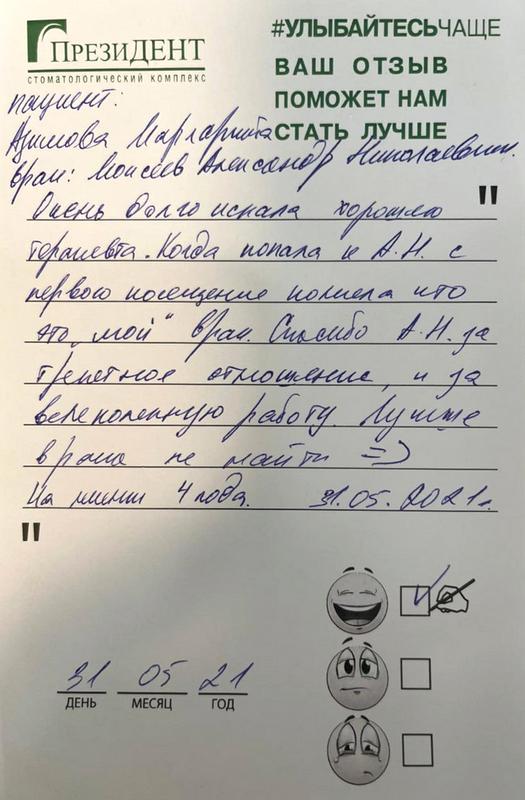 ПРЕЗИДЕНТ
СТОМАТОЛОГИЧЕСКИЙ КОМПЛЕКС
#УЛЫБАЙТЕСЬЧАЩЕ
ВАШ ОТЗЫВ
ПОМОЖЕТ НАМ
СТАТЬ ЛУЧШЕ
пациент:
Азимова Маргарита
Врач: Моисеев Александр Николаевич.
"
Очень долго искала хорошего
терапевта. Когда попала к А.Н. с
первого посещение поняла что
это „мой" врач. Спасибо А.Н. за
трепетное отношение, и за
великолепную работу. Лучше
врача не найти =)
На 4 года. 31.05.2021г.
"
31 05 21
ДЕНЬ МЕСЯЦ ГОД